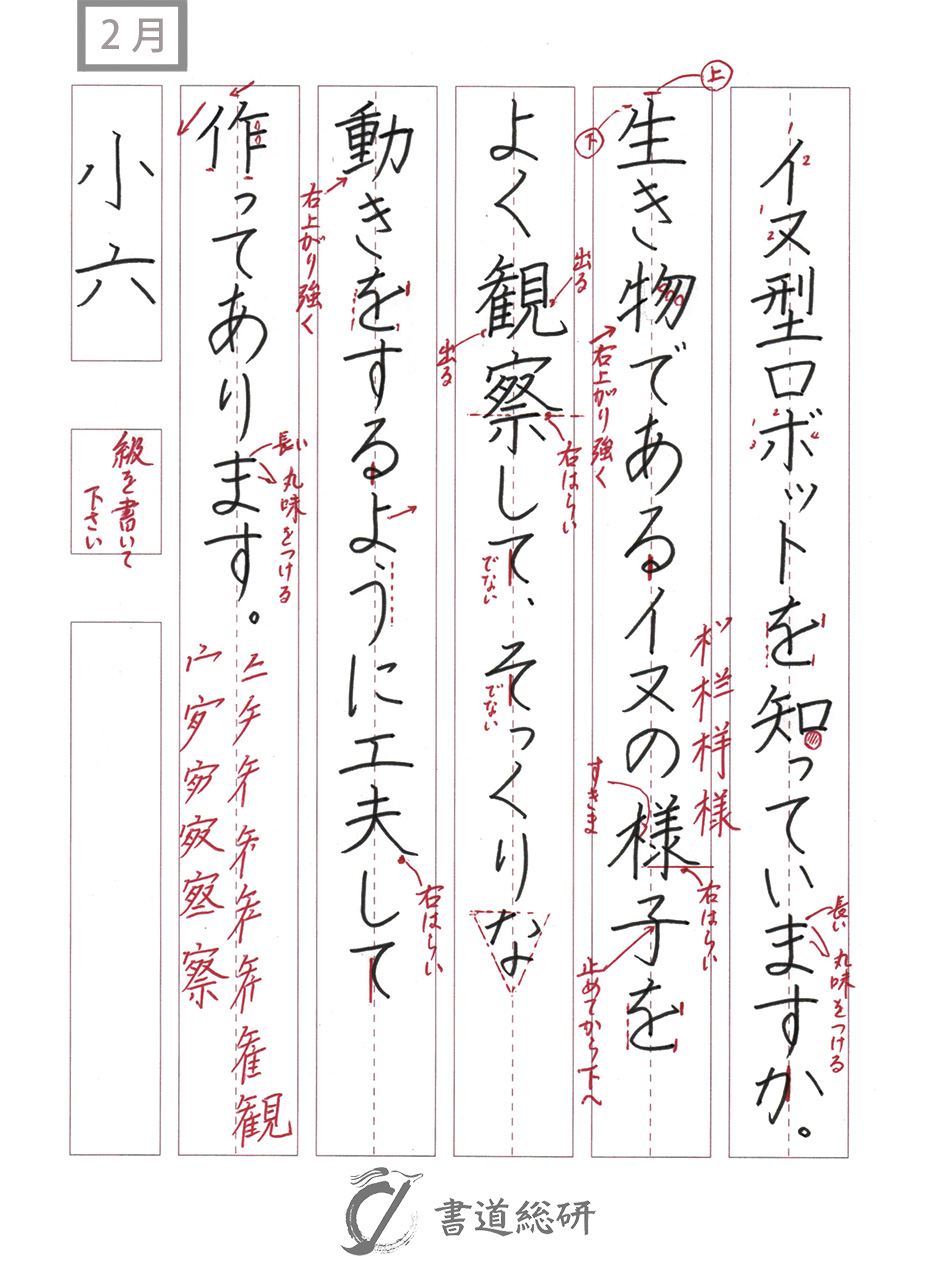 2月
イヌ型ロボットを知っていますか。
生き物であるイヌの様子を
よく観察して、そっくりな
動きをするように工夫して
作ってあります。
小六
級を書いて
下さい
1
2
1
2
1
2
3
4
長い
丸味をつける
様
上
下
右上がり強く
すきま
右はらい
止めてから下へ
出る
出る
右はらい
でない
でない
右上がり強く
右はらい
長い
丸味をつける
観
察
書道総研